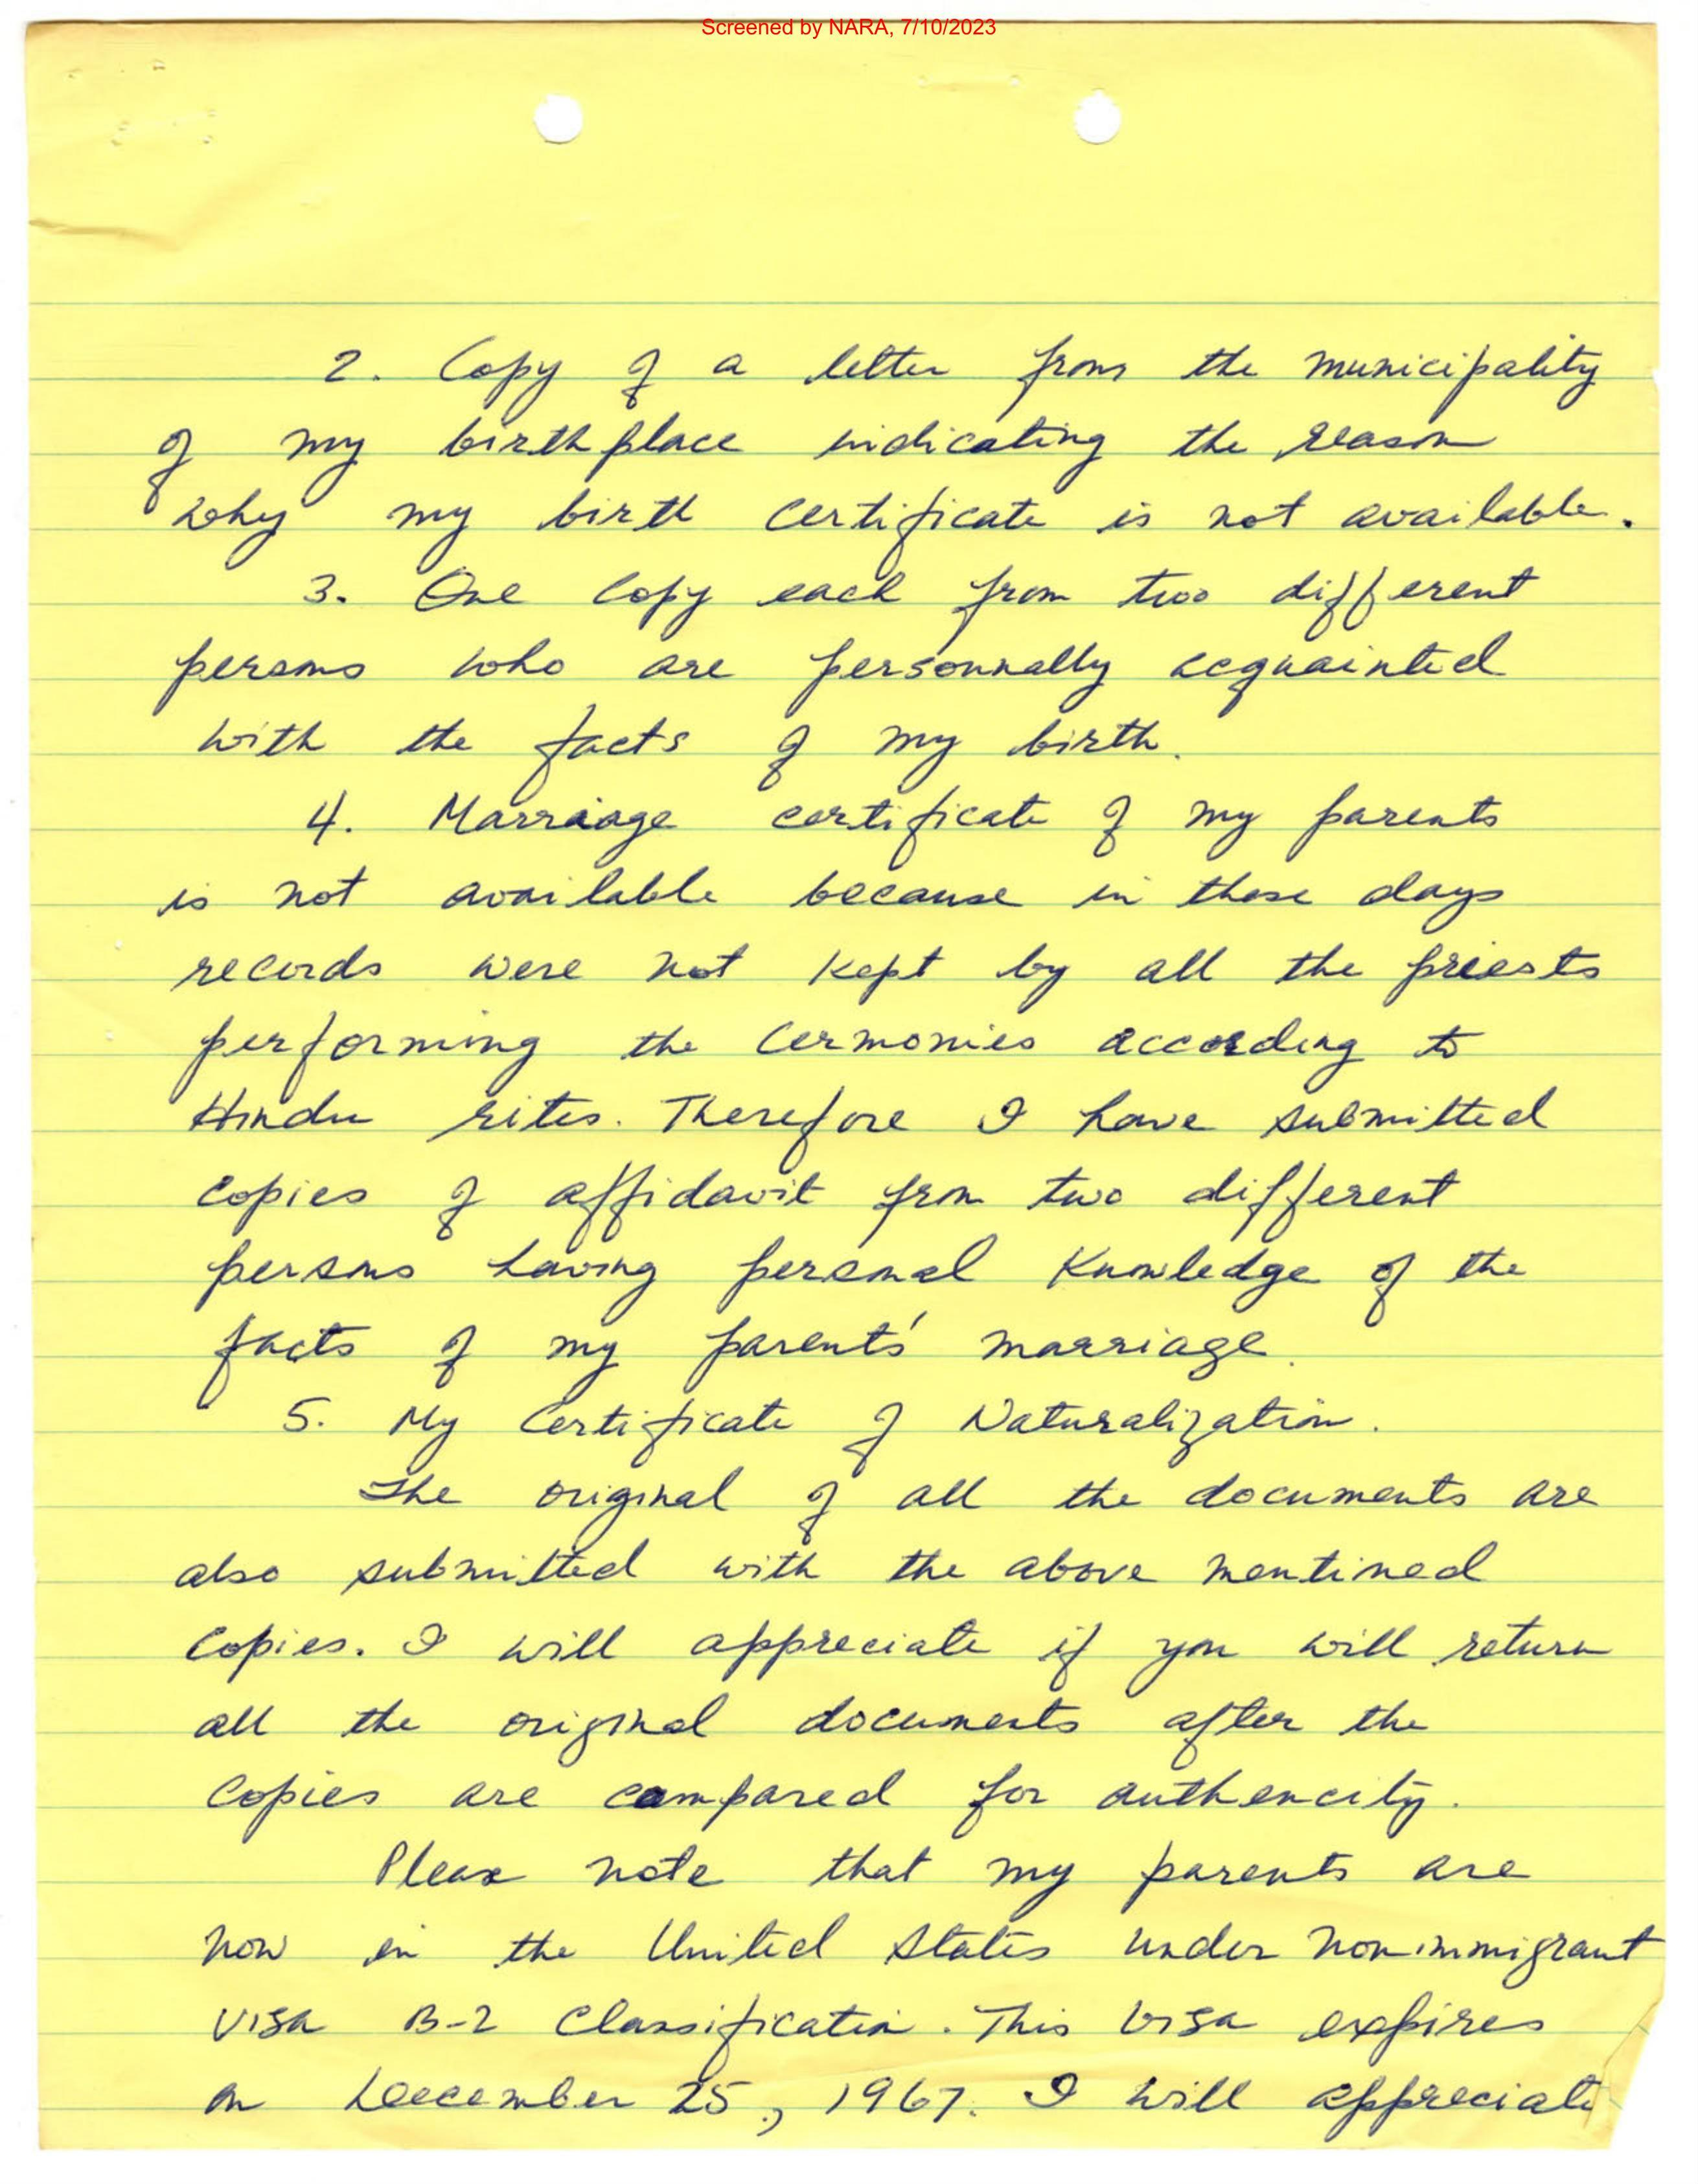 Screened by NARA, 7/10/2023
2. Copy of a letter from the municipality
of my birth place indicating the reason
why my birth certificate is not available.
3. One Copy each from two different
persons who are personnally acquainted
with the facts of my birth.
4. Marriage certificate of my parents
is not available because in those days
records were not kept by all the priests
performing the Cermonies according to
Hindu rites. Therefore I have submitted
copies of affidavit from two different
persons having personal knowledge of the
facts of my parents' marriage.
5. My Certificate of Naturalization.
The original of all the documents are
also submitted with the above mentioned
copies. I will appreciate if you will return
all the original documents after the
copies are compared for authencity.
Please note that my parents are
now in the United States under nonimmigrant
visa B-2 classification. This visa expires
on December 25, 1967. I will appreciate